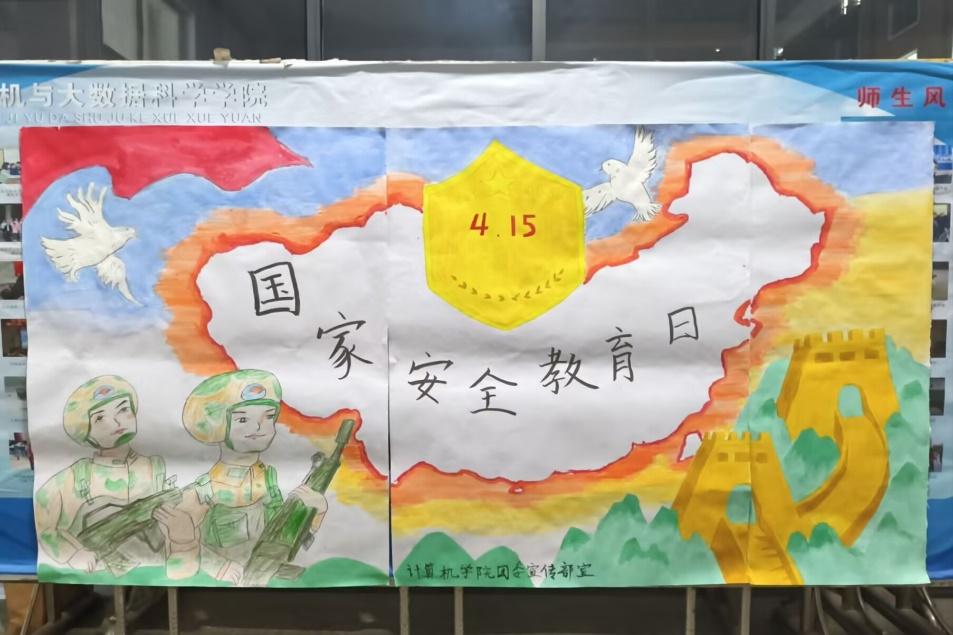 机与大数据科学学院
JI YU DA SHU JU KE XUE XUE YUAN
师生风
4.15
国家安全教育日
计算机学院团合宣传部宣